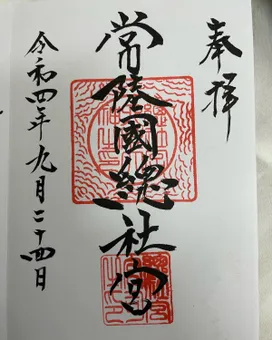 奉拝
常陸國總社宮
令和四年九月二十四日